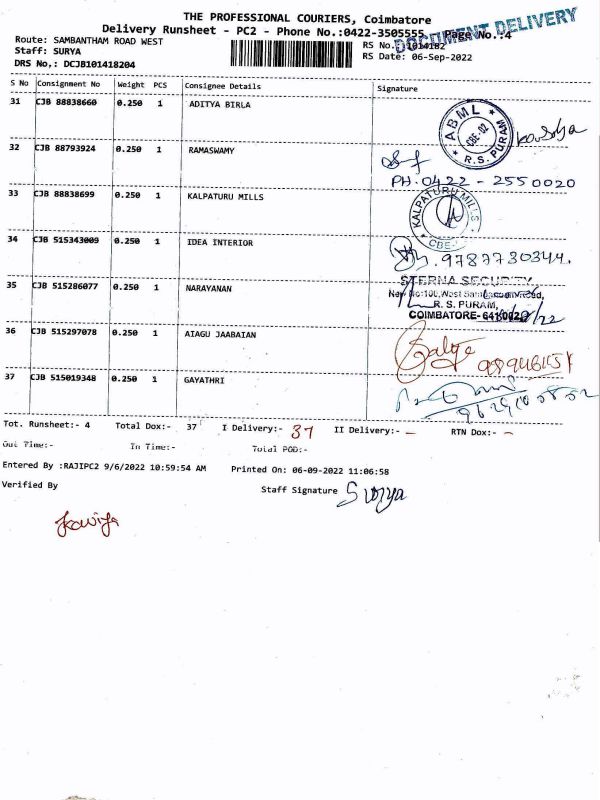 THE PROFESSIONAL COURIERS, Coimbatore
Delivery Runsheet - PC2 - Phone No.:0422-3505555 Page No.:4
DOCUMENT DELIVERY
Route: SAMBANTHAM ROAD WEST
RS No.: 1014182
Staff: SURYA
RS Date: 06-Sep-2022
DRS No,: DCJB101418204
S No Consignment No Weight PCS Consignee Details Signature
31 CJB 88838660 0.250 1 ADITYA BIRLA
ABML CBE-02 R.S. PURAM
32 CJB 88793924 0.250 1 RAMASWAMY
PH.0422-2550020
33 CJB 88838699 0.250 1 KALPATURU MILLS
KALPATURU MILLS CBE-
34 CJB 515343009 0.250 1 IDEA INTERIOR
9787730344.
35 CJB 515286077 0.250 1 NARAYANAN
STERNA SECURITY
R. S. PURAM,
36 CJB 515297078 0.250 1 AIAGU JAABAIAN
37 CJB 515019348 0.250 1 GAYATHRI
Tot. Runsheet:- 4 Total Dox:- 37 I Delivery:- 37 II Delivery:- - RTN Dox:- -
Out Time:- In Time:- Total POD:-
Entered By :RAJIPC2 9/6/2022 10:59:54 AM Printed On: 06-09-2022 11:06:58
Verified By Staff Signature Surya